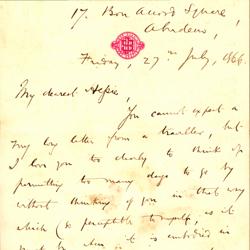 17. Bon Accord Square,
Aberdeen,
Friday, 27th July, 1866.
My dearest
You cannot expect a
long letter from a traveller, but
I love you too dearly to think of
permitting too many days to go by
without thinking of you in that way
which (so perceptible to myself, as it
is embodied in